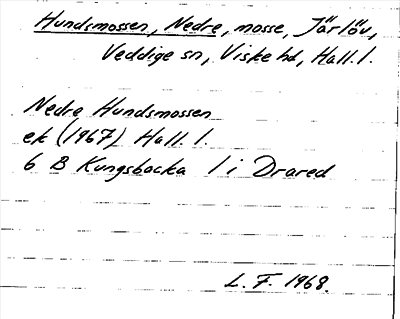 Hundsmossen, Nedre, mosse, Järlöv,
Veddige sn, Viske hd, Hall. l.
Nedre Hundsmossen
ek (1967) Hall. l.
6 B Kungsbacka 1 i Drared
L. F. 1968.